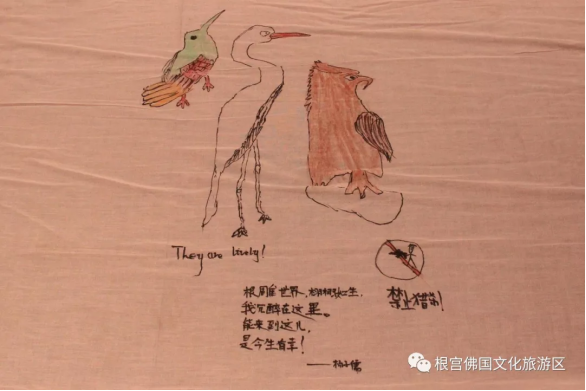 They are lively!
禁止猎鸟!
根雕世界，栩栩如生，
我沉醉在这里。
能来到这儿，
是今生有幸！
——杨子儒
根宫佛国文化旅游区